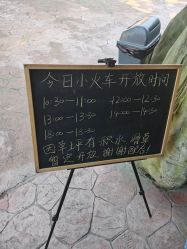 今日小火车开放时间
10:30-11:00 12:00-12:30
13:00-13:30 14:00-14:30
18:00-18:30
因草坪有积水 滑草
暂定开放 谢谢配合!